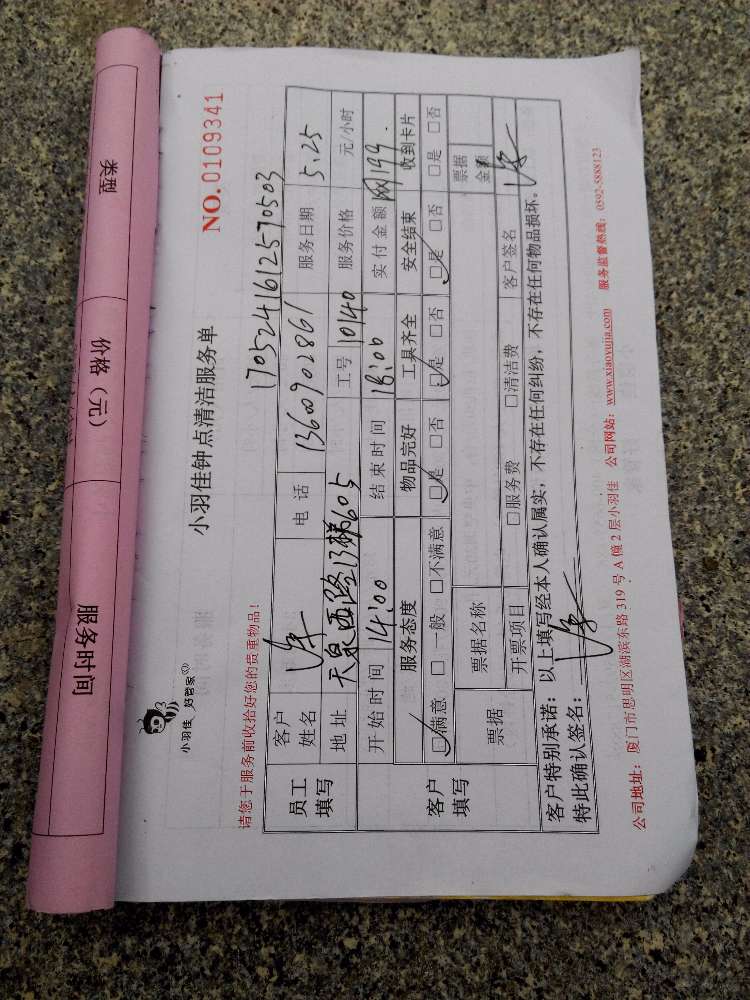 类型
价格（元）
服务时间
小羽佳 好管家
小羽佳钟点清洁服务单
NO.0109341
请您于服务前收拾好您的贵重物品！
1705241612570503
员工填写
客户姓名 电话 13600902861 服务日期 5.25
地址 天泉西路13梯605 工号 10140 服务价格 元/小时
开始时间 14:00 结束时间 18:00 实付金额 网199.
客户填写
服务态度 物品完好 工具齐全 安全结束 收到卡片
□满意 □一般 □不满意 □是 □否 □是 □否 □是 □否 □是 □否
票据 票据名称 票据金额
开票项目 □服务费 □清洁费 客户签名
客户特别承诺：以上填写经本人确认属实，不存在任何纠纷，不存在任何物品损坏。
特此确认签名：
公司地址：厦门市思明区湖滨东路319号A幢2层小羽佳 公司网站：www.xiaoyujia.com 服务监督热线：0592-5888123